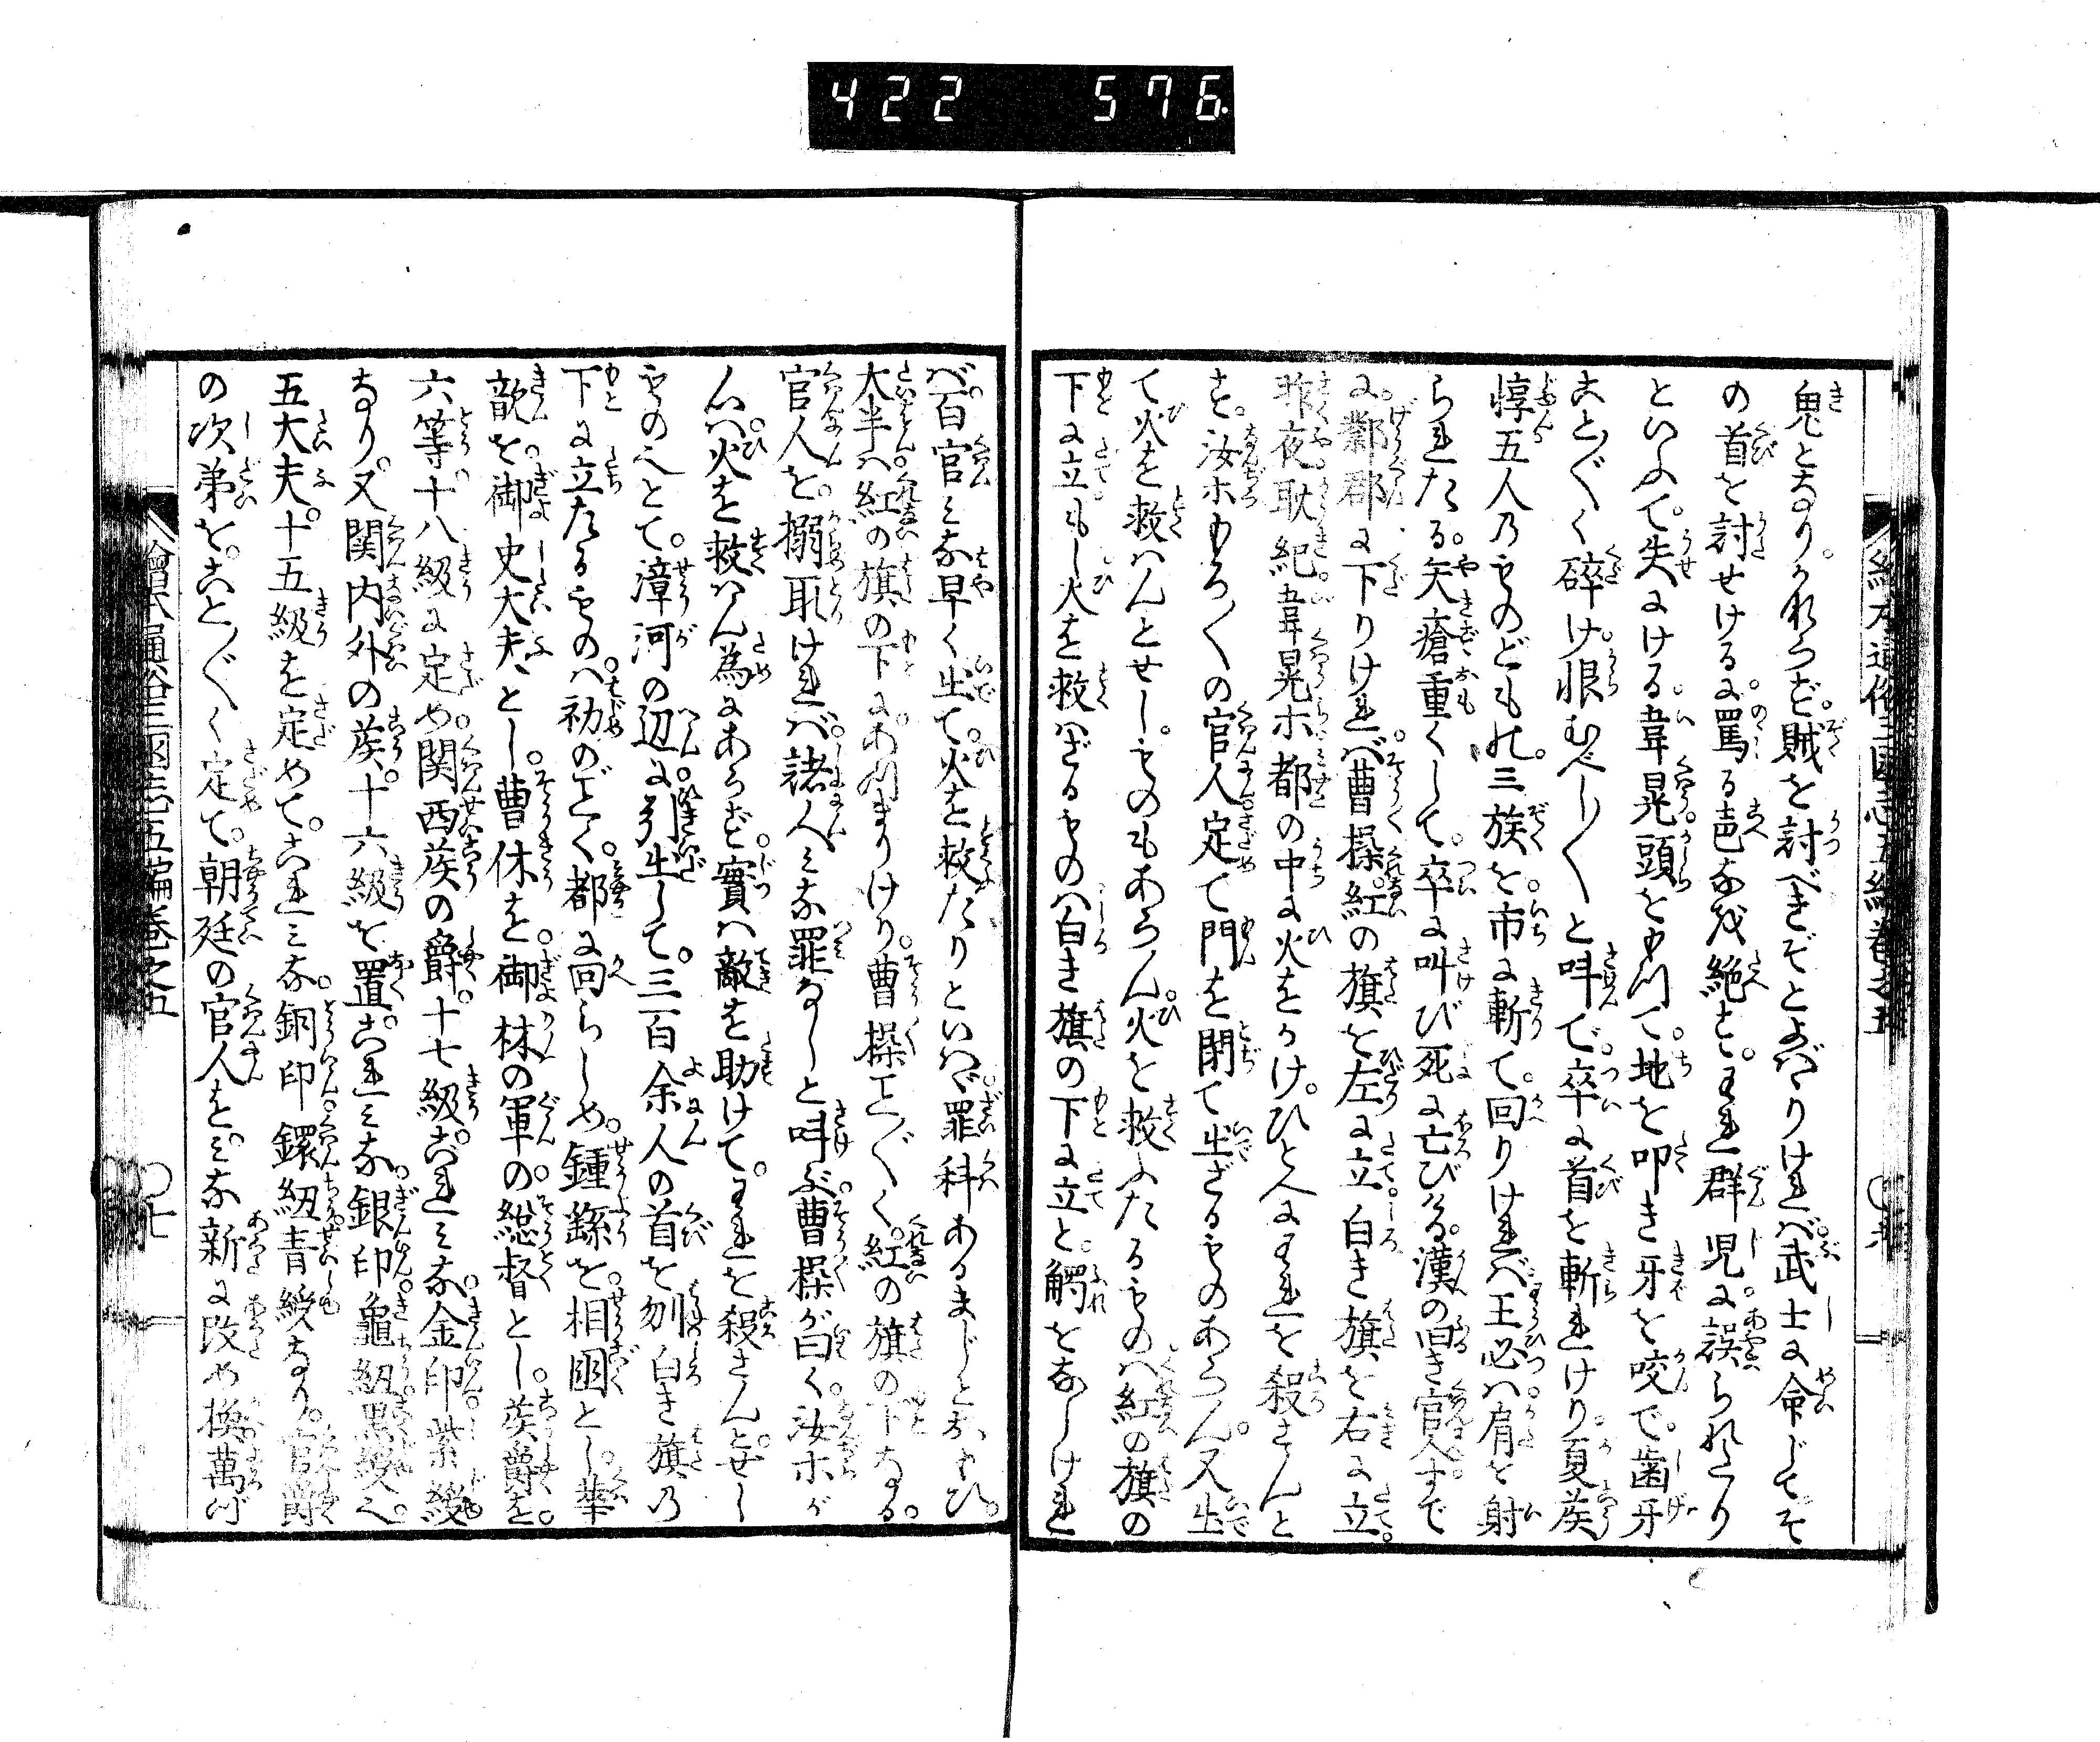 422 576
繪本通俗三國志五編巻之五
鬼となりかならず。賊を討べきぞとよばゝりければ。武士に命じてそ
の首を討せけるに。罵る声なを絶ず。われ群児に。誤られたり
といふて。失にける。韋晃。頭をもつて。地を叩き牙を咬で。歯牙
こと〴〵く碎け。恨むべし〳〵と呌で。卒に首を斬れけり。夏侯
惇五人のものどもの。三族を。市に斬て。回りければ。王必は。肩を射
られたる。矢瘡重くして。卒に叫び死に亡びける。漢の旧き官人。すで
に。鄴郡に下りければ。曹操。紅の旗を左に立。白き旗を右に立。
昨夜耿紀。韋晃ホ都の中に火をかけ。ひとへにわれを殺さんと
す。汝ホもろ〳〵の官人定て門を閉て出ざるものあらん。又出
て火を救はんとせし。ものもあらん。火を救ふたるものは紅の旗の
下に立。もし火を救はざるものは白き旗の下に立と。觸をなしけれ
ば。百官みな早く出て。火を救たりといはゞ。罪科あるまじとおもひ。
大半は紅の旗の下に。あつまりけり。曹操こと〴〵く。紅の旗の下なる。
官人を。搦取ければ。諸人みな罪なしと呌ぶ。曹操が曰く。汝ホが
心は。火を救はん為にあらず。實は敵を助けて。われを殺さんとせし
ものへとて。漳河の辺に引出して。三百余人の首を刎。白き旗の
下に立たるものは。初のごく。都に回らしめ。鍾繇を。相國とし。華
歆を。御史大夫とし。曹休を。御林の軍の。総督とし。侯爵を。
六等。十八級に定め。関西侯の爵。十七級。これみな。金印紫綬
なり。又関内外の侯。十六級を置。これみな。銀印龜紐黒綬へ。
五大夫。十五級を定めて。これみな。銅印鐶紐青綬なり。官爵
の次第を。こと〴〵く定て。朝廷の官人を。みな新に改め換萬づ
繪本通俗三國志五編巻之五
〇七